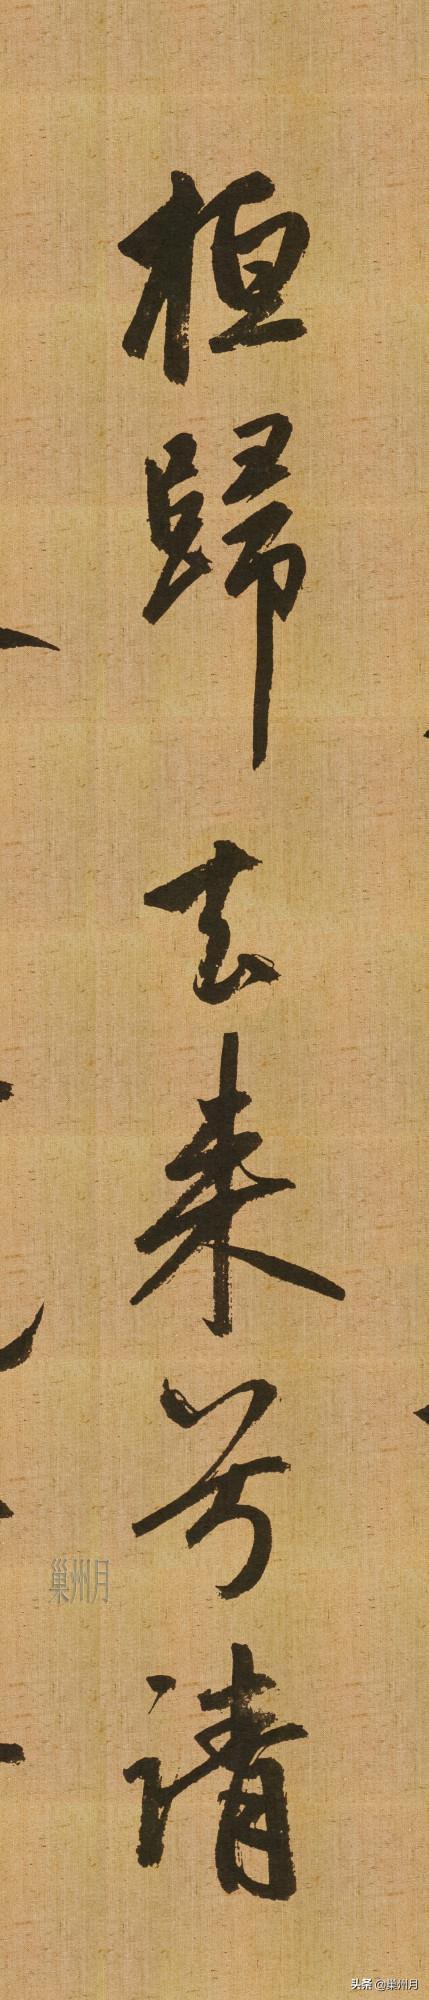 桓歸去来兮請
巢州月
头条 @巢州月